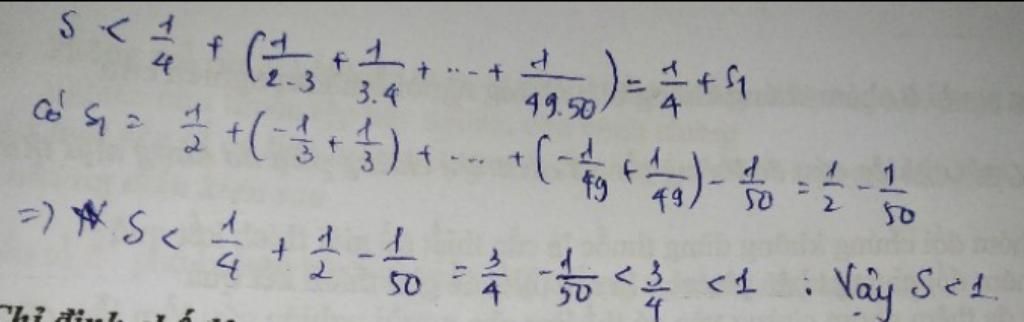 S < 1/4 + (1/2.3 + 1/3.4 + ... + 1/49.50) = 1/4 + S1
Có S1 = 1/2 + (-1/3 + 1/3) + ... + (-1/49 + 1/49) - 1/50 = 1/2 - 1/50
=> S < 1/4 + 1/2 - 1/50 = 3/4 - 1/50 < 3/4 < 1 : Vậy S < 1
Chỉ định